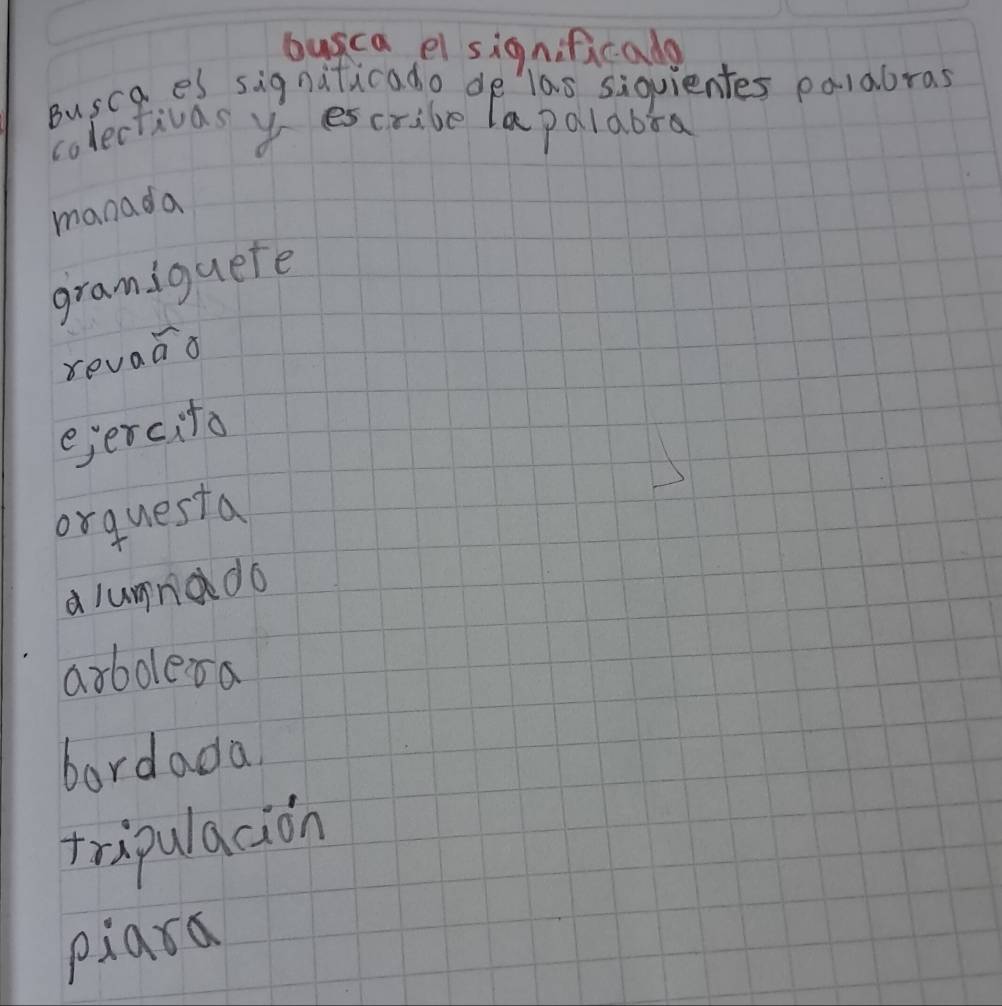 busca el significado
Busca es significado de las siguientes palabras
colectivas y escribe la palabra
manada
gramiguete
revaão
ejercito
orquesta
alumnado
arbolera
bordada
tripulación
piara